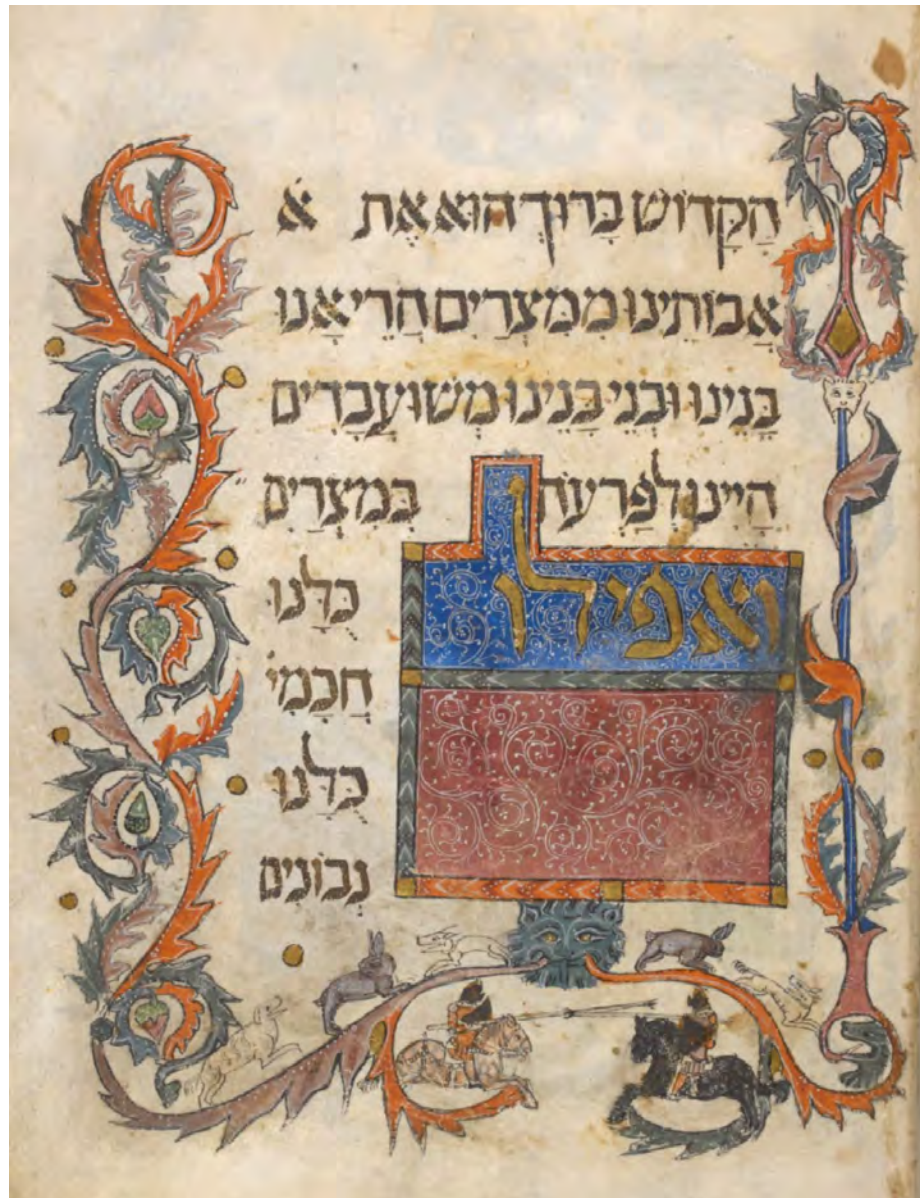 הַקָּדוֹשׁ בָּרוּךְ הוּא אֶת א
אֲבוֹתֵינוּ מִמִּצְרַיִם הֲרֵי אָנוּ
בָּנֵינוּ וּבְנֵי בָּנֵינוּ מְשׁוּעֲבָּדִים
הָיִינוּ לְפַרְעֹה בְּמִצְרַיִם
ואפילו כֻּלָּנוּ
חֲכָמִי
כֻּלָּנוּ
נְבוֹנִים